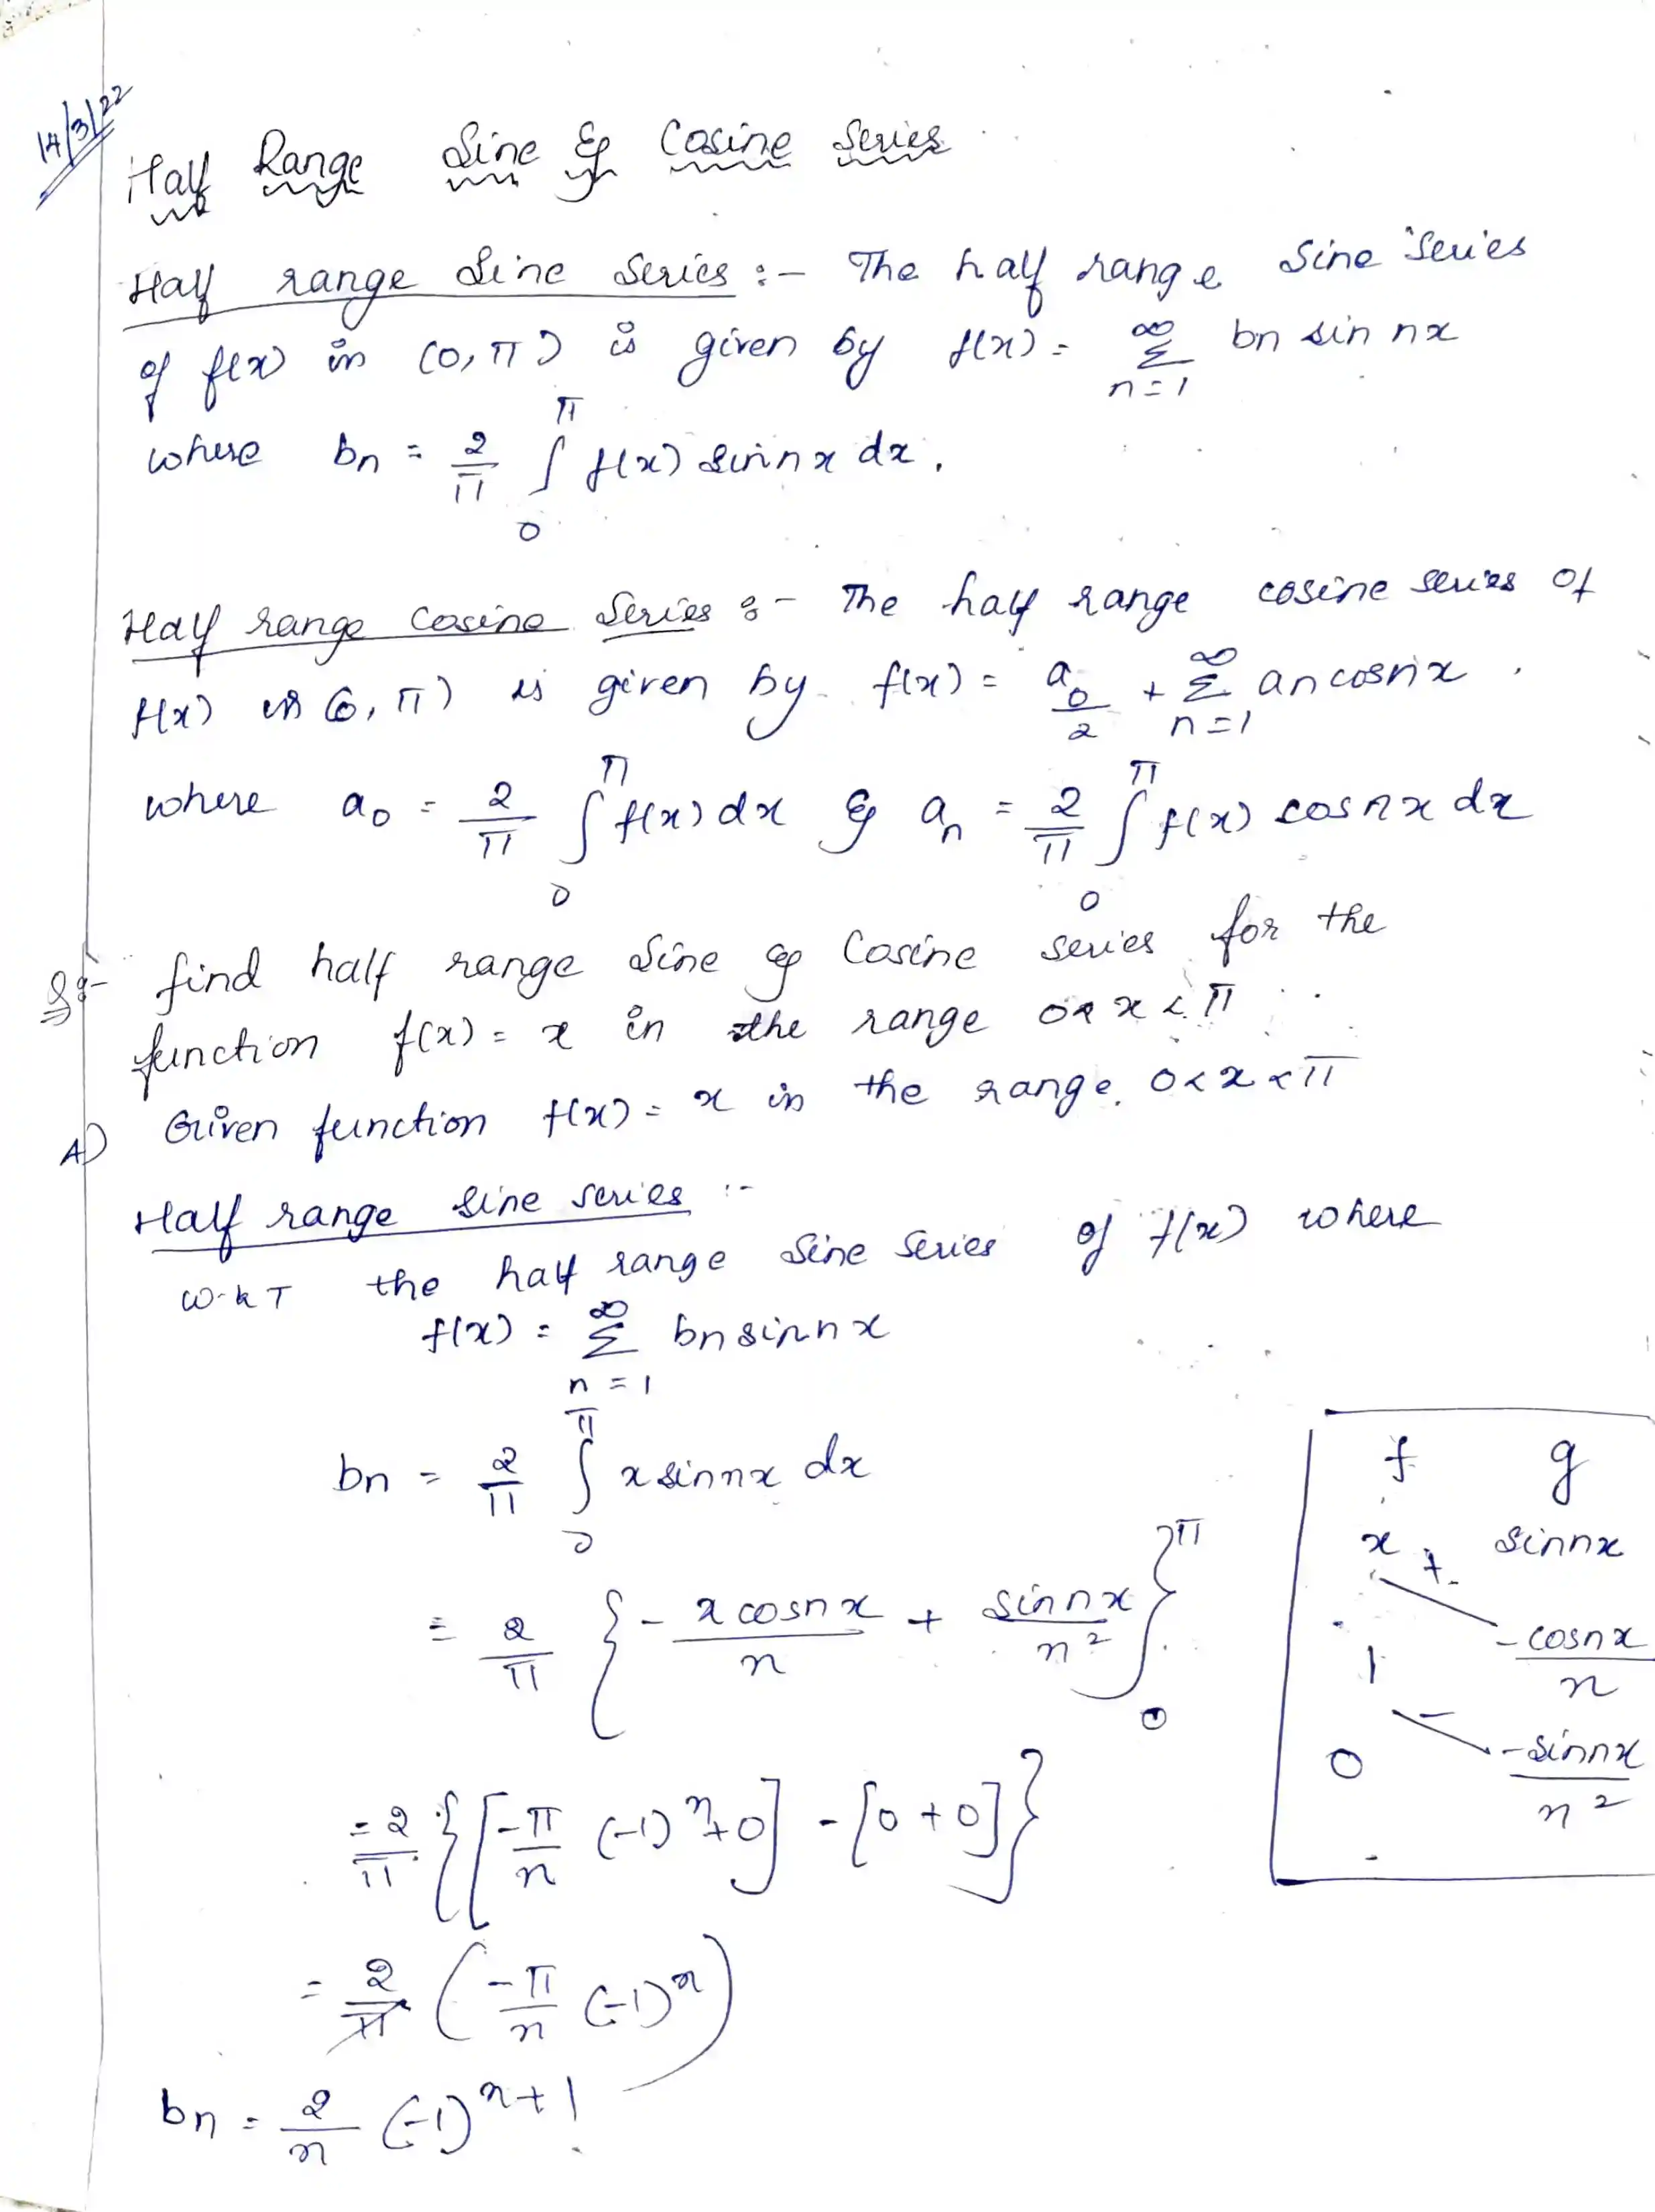 14/3/22
Half Range Sine & Cosine Series
Half range Sine Series :- The half range Sine Series
of f(x) in (0, π) is given by f(x) = ∞Σn=1 bn sin nx
where bn = 2/π ∫₀^π f(x) sin nx dx.
Half range Cosine Series :- The half range cosine series of
f(x) in (0, π) is given by f(x) = a₀/2 + ∞Σn=1 an cosnx.
where a₀ = 2/π ∫₀^π f(x) dx & an = 2/π ∫₀^π f(x) cosnx dx
find half range Sine & Cosine series for the
function f(x) = x in the range 0 < x < π
A) Given function f(x) = x in the range 0 < x < π
Half range sine series :-
W.k T the half range Sine Series of f(x) where
f(x) = ∞Σn=1 bn sinnx
bn = 2/π ∫₀^π x sinnx dx
= 2/π { - x cosnx / n + sinnx / n² }₀^π
= 2/π { [ -π/n (-1)ⁿ + 0 ] - [0 + 0] }
= 2/π ( -π/n (-1)ⁿ )
bn = 2/n (-1)ⁿ⁺¹
f g
x + sinnx
1 -cosnx/n
0 - -sinnx/n²